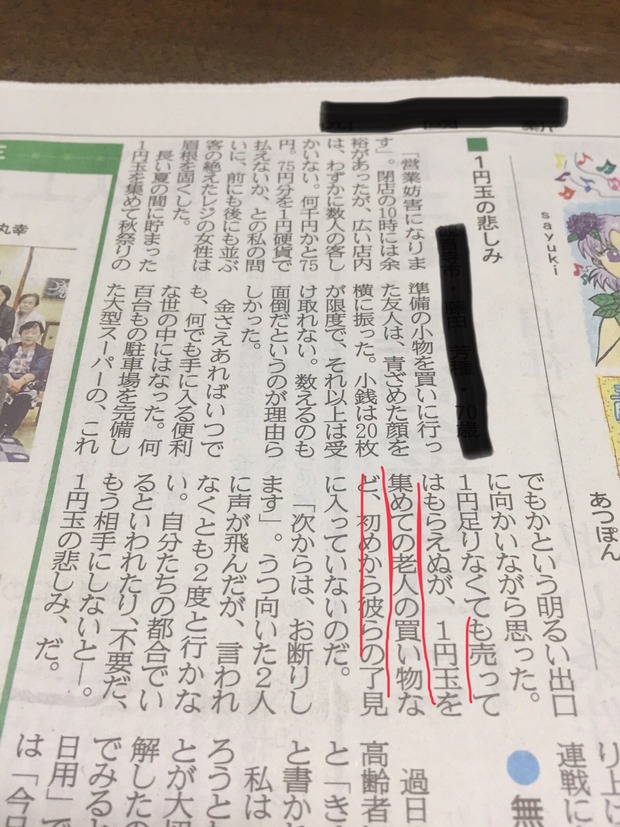 sayuki
あつぽん
■1円玉の悲しみ
70歳
「営業妨害になりま
す」。閉店の10時には余
裕があったが、広い店内
は、わずかに数人の客し
かいない。何千円かと75
円。75円分を1円硬貨で
払えないか、との私の問
いに、前にも後にも並ぶ
客の絶えたレジの女性は
眉根を固くした。
長い夏の間に貯まった
1円玉を集めて秋祭りの
準備の小物を買いに行っ
た友人は、青ざめた顔を
横に振った。小銭は20枚
が限度で、それ以上は受
け取れない。数えるのも
面倒だというのが理由ら
しかった。
金さえあればいつで
も、何でも手に入る便利
な世の中にはなった。何
百台もの駐車場を完備し
た大型スーパーの、これ
でもかという明るい出口
に向かいながら思った。
1円足りなくても売って
はもらえぬが、1円玉を
集めての老人の買い物な
ど、初めから彼らの了見
に入っていないのだ。
「次からは、お断りし
ます」。うつ向いた2人
に声が飛んだが、言われ
なくとも2度と行かな
い。自分たちの都合でい
るといわれたり、不要だ、
もう相手にしないと―。
1円玉の悲しみ、だ。
丸幸
り上げ
連戦に
無
過日
高齢者
と「き
と書か
私は
ろうと
とが大切
解したの
でみると
日用」で
は「今日